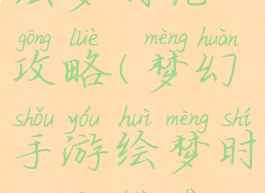 gōng lüè mèng huàn
攻略(梦幻
shǒu yóu huì mèng shí
手游绘梦时